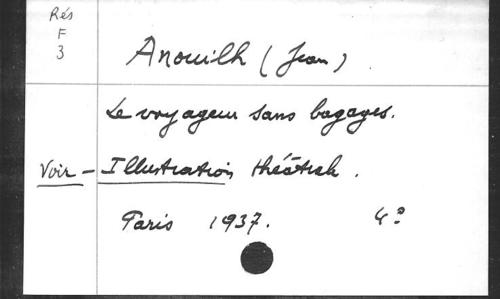 Rés
F
3
Anouilh (Jean)
Le voyageur sans bagages.
Voir - Illustration théâtrale.
Paris 1937. 4°